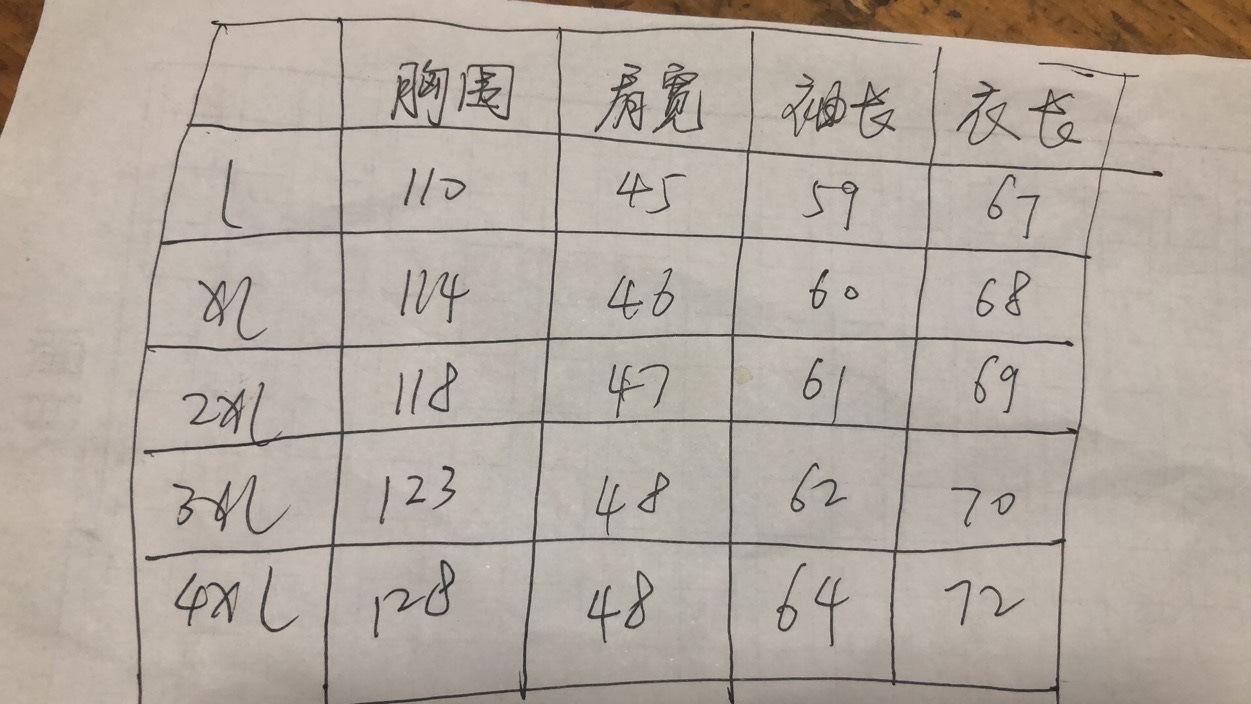 胸围 肩宽 袖长 衣长
L 110 45 59 67
XL 114 46 60 68
2XL 118 47 61 69
3XL 123 48 62 70
4XL 128 48 64 72